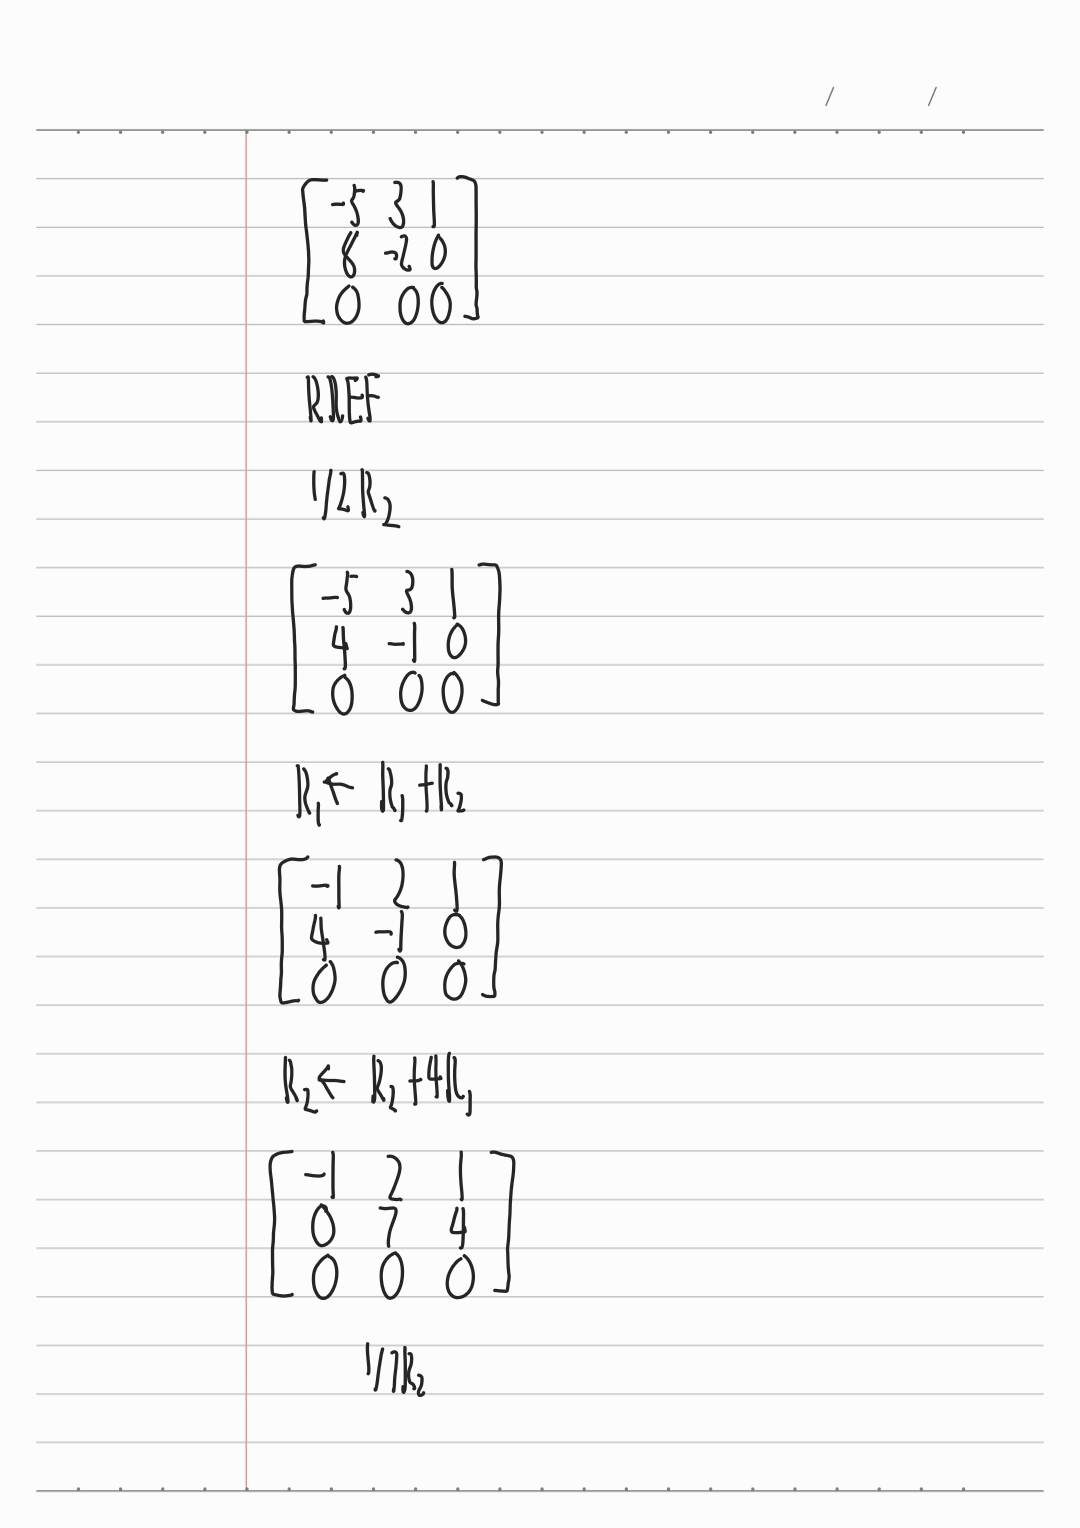 / /
[ -5 3 1
8 -2 0
0 0 0 ]
RREF
1/2 R₂
[ -5 3 1
4 -1 0
0 0 0 ]
R₁ ← R₁ + R₂
[ -1 2 1
4 -1 0
0 0 0 ]
R₂ ← R₂ + 4R₁
[ -1 2 1
0 7 4
0 0 0 ]
1/7 R₂